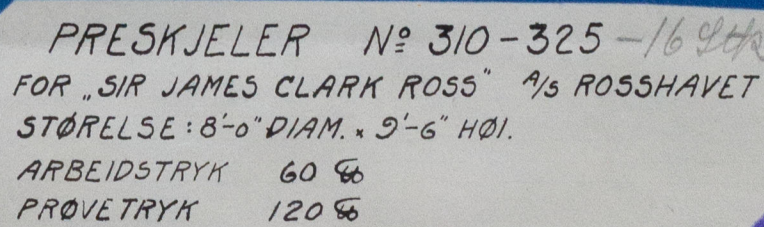 PRESKJELER Nº 310-325 -16 Stk
FOR „SIR JAMES CLARK ROSS" A/S ROSSHAVET
STØRELSE: 8'-0" DIAM. × 9'-6" HØI.
ARBEIDSTRYK 60 ℔
PRØVETRYK 120 ℔